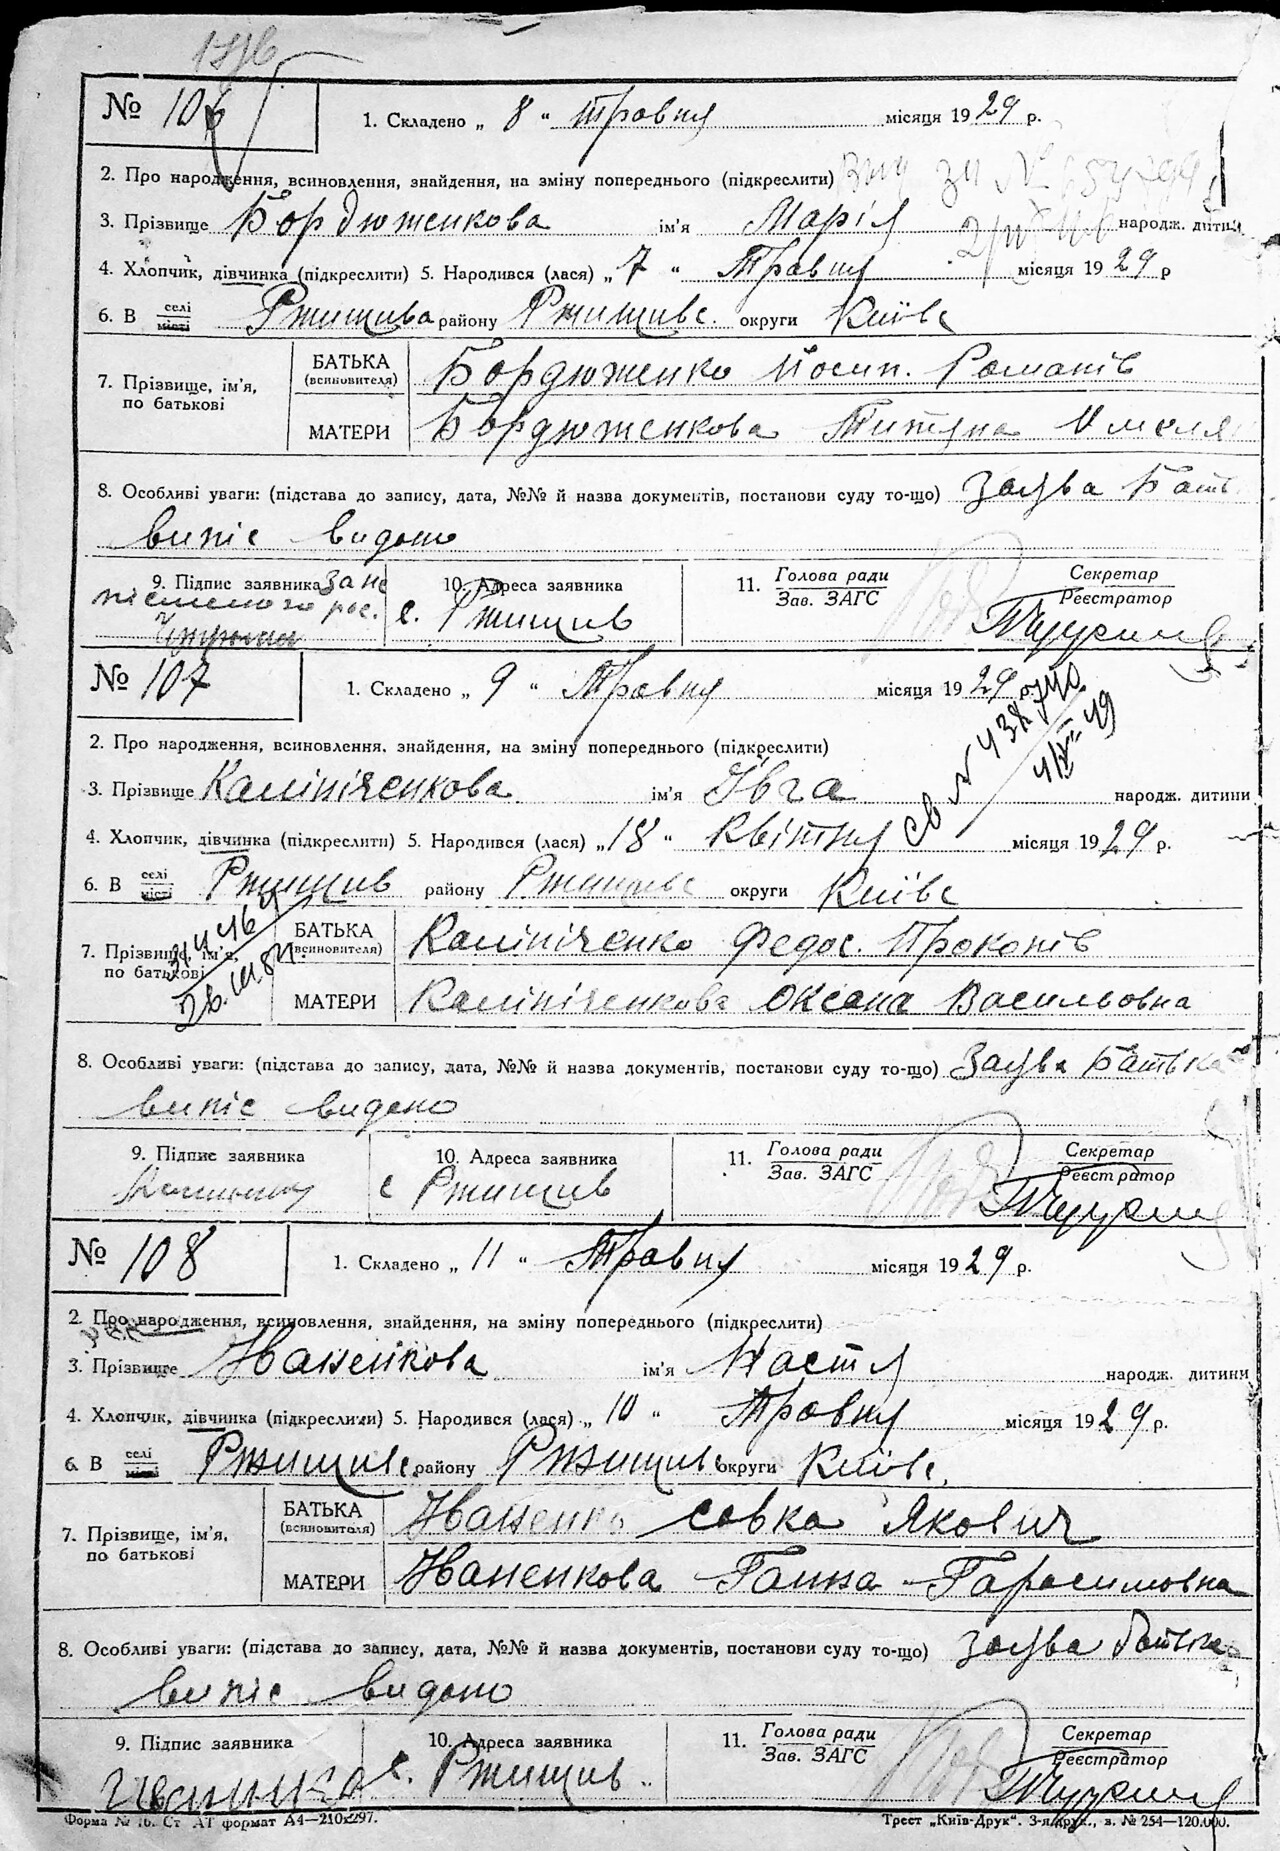 № 106 1. Складено „ 8 “ Травня місяця 1929 р.
2. Про народження, всиновлення, знайдення, на зміну попереднього (підкреслити)
3. Прізвище Бордюженкова ім'я Марія народж. дитини
4. Хлопчик, дівчинка (підкреслити) 5. Народився (лася) „ 7 “ Травня місяця 1929 р
6. В селі місті Ржищева району Ржищивс. округи Київс
7. Прізвище, ім'я, по батькові
БАТЬКА (всиновителя) Бордюженко Йосип. Романів
МАТЕРИ Бордюженкова Титяна Омеля
8. Особливі уваги: (підстава до запису, дата, №№ й назва документів, постанови суду то-що) заява Бать
випіс видано
9. Підпис заявника за не 10. Адреса заявника 11. Голова ради Зав. ЗАГС Секретар Реєстратор
писменого рос. с. Ржищив
№ 107 1. Складено „ 9 “ Травня місяця 1929 р.
св № 438740
4/V-49
2. Про народження, всиновлення, знайдення, на зміну попереднього (підкреслити)
3. Прізвище Калініченкова ім'я Ївга народж. дитини
4. Хлопчик, дівчинка (підкреслити) 5. Народився (лася) „18 “ Квітня місяця 1929 р.
6. В селі місті Ржищив району Ржищивс округи Київс
7. Прізвище, ім'я, по батькові
БАТЬКА (всиновителя) Калініченко Федос. Прокопів
МАТЕРИ Калініченкова Оксана Васильовна
8. Особливі уваги: (підстава до запису, дата, №№ й назва документів, постанови суду то-що) Заява Батька
випіс видано
9. Підпис заявника 10. Адреса заявника 11. Голова ради Зав. ЗАГС Секретар Реєстратор
с Ржищив
№ 108 1. Складено „ 11 “ Травня місяця 1929 р.
2. Про народження, всиновлення, знайдення, на зміну попереднього (підкреслити)
3. Прізвище Іваненкова ім'я Настя народж. дитини
4. Хлопчик, дівчинка (підкреслити) 5. Народився (лася) „ 10 “ Травня місяця 1929 р.
6. В селі місті Ржищивс району Ржищивс округи Київс.
7. Прізвище, ім'я, по батькові
БАТЬКА (всиновителя) Іваненко Совка Якович
МАТЕРИ Іваненкова Ганна Гарасимовна
8. Особливі уваги: (підстава до запису, дата, №№ й назва документів, постанови суду то-що) заява батька
випіс видано
9. Підпис заявника 10. Адреса заявника 11. Голова ради Зав. ЗАГС Секретар Реєстратор
с. Ржищив.
Форма № 16. Ст АТ формат А4—210×297. Трест „Київ-Друк“. 3-я друк., з. № 254—120.000.